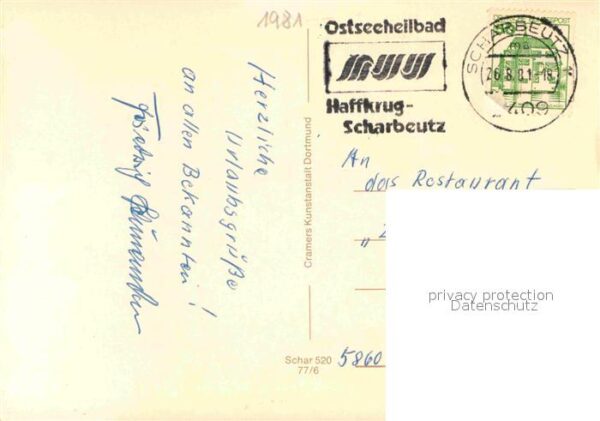 1981
Ostseeheilbad
Haffkrug-
Scharbeutz
SCHARBEUTZ
26.8.81-18
409
Herzliche
Urlaubsgrüße
an allen Bekannten!
An
das Restaurant
"
5860
Cramers Kunstanstalt Dortmund
Schar 520
77/6
privacy protection
Datenschutz